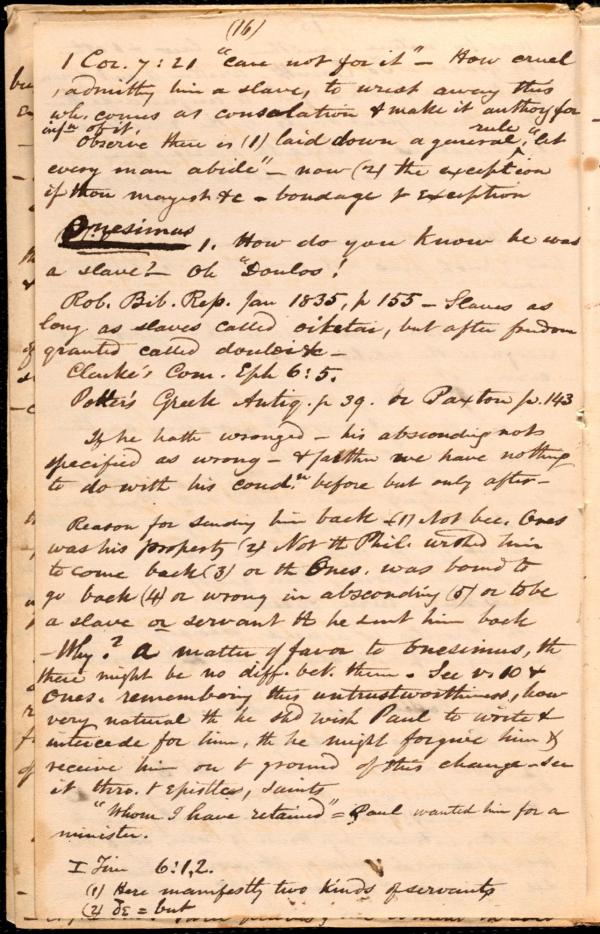 (16)
1 Cor. 7:21 "care not for it" – How cruel
, admittg him a slave, to wrest away this
wh. comes as consolation & make it authoy for
infn of it.
Observe there is (1) laid down a general rule, "let
every man abide" – now (2) the exception
if thou mayest &c – bondage & Exception
Onesimus
1. How do you know he was
a slave? – Oh "Doulos!
Rob. Bib. Rep. Jan 1835, p 155 – Slaves as
long as slaves called oiketai, but after freedom
granted called douloi &c –
Clarke's Com. Eph 6:5.
Potter's Greek Antiq. p 39. or Paxton p. 143
If he hath wronged – his absconding not
specified as wrong – & farther we have nothing
to do with his condn before but only after –
Reason for sending him back – (1) Not bec. Ones
was his property (2) Not th Phil. him
to come back (3) or th Ones. was bound to
go back (4) or wrong in absconding (5) or to be
a slave or servant th he sent him back
– Why? a matter of favor to Onesimus, th
there might be no diff. bet. them. See vs 10 &
Ones. remembering this untrustworthiness, how
very natural th he shd wish Paul to write &
intercede for him, th he might forgive him &
receive him on t ground of this change – see
it thro. t Epistles, saints
"Whom I have retained" = Paul wanted him for a
minister.
I Tim 6:1,2.
(1) Here manifestly two kinds of servants
(2) δε = but